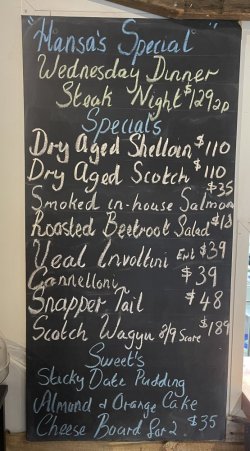 "Hansa's Special"
Wednesday Dinner
Steak Night $129 2p
Special's
Dry Aged Shelloin $110
Dry Aged Scotch $110
Smoked in-house Salmon $35
Roasted Beetroot Salad $18
Veal Involtini Ent $39
Cannelloni $39
Snapper Tail $48
Scotch Wagyu 8/9 Score $189
Sweet's
Sticky Date Pudding
Almond & Orange Cake
Cheese Board for 2. $35